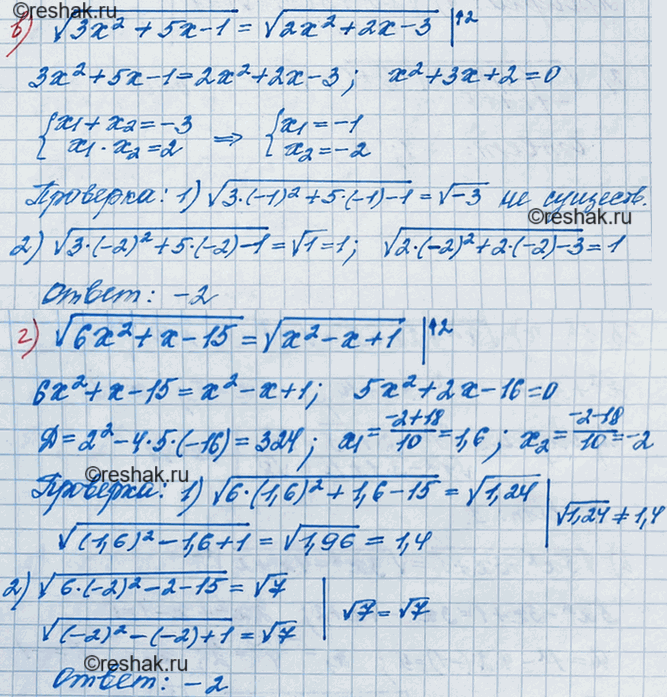 ©reshak.ru
в) √(3x² + 5x - 1) = √(2x² + 2x - 3) |↑2
3x² + 5x - 1 = 2x² + 2x - 3; x² + 3x + 2 = 0
{x₁ + x₂ = -3 ⇒ {x₁ = -1
x₁ · x₂ = 2 x₂ = -2
Проверка: 1) √(3·(-1)² + 5·(-1) - 1) = √-3 не существ.
©reshak.ru
2) √(3·(-2)² + 5·(-2) - 1) = √1 = 1; √(2·(-2)² + 2·(-2) - 3) = 1
Ответ: -2
©reshak.ru
г) √(6x² + x - 15) = √(x² - x + 1) |↑2
6x² + x - 15 = x² - x + 1; 5x² + 2x - 16 = 0
Д = 2² - 4·5·(-16) = 324; x₁ = (-2+18)/10 = 1,6; x₂ = (-2-18)/10 = -2
©reshak.ru
Проверка: 1) √(6·(1,6)² + 1,6 - 15) = √1,24 | √1,24 ≠ 1,4
√((1,6)² - 1,6 + 1) = √1,96 = 1,4
©reshak.ru
2) √(6·(-2)² - 2 - 15) = √7 | √7 = √7
√((-2)² - (-2) + 1) = √7
©reshak.ru
Ответ: -2